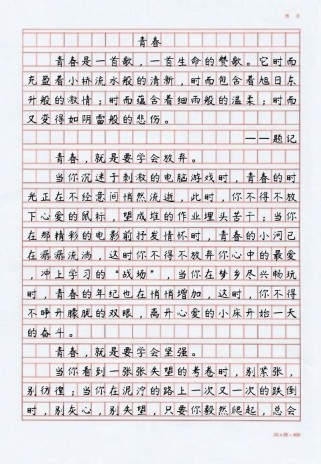 青春
青春是一首歌，一首生命的赞歌。它时而
充盈着小桥流水般的清新，时而包含着旭日东
升般的激情；时而蕴含着细雨般的温柔；时而
又变得如阴雷般的悲伤。
——题记
青春，就是要学会放弃。
当你沉迷于刺激的电脑游戏时，青春的时
光正在不经意间悄然流逝，此时，你不得不放
下心爱的鼠标，望成堆的作业埋头苦干；当你
在那精彩的电影前抒发情怀时，青春的小河已
在潺潺流淌，这时你不得不放弃你心中的最爱
，冲上学习的“战场”，当你在梦乡尽兴畅玩
时，青春的年纪也在悄悄增加，这时，你不得
不呼开朦胧的双眼，离开心爱的小床开始一天
的奋斗。
青春，就是要学会坚强。
当你看到一张张失望的考卷时，别紧张，
别彷徨；当你在泥泞的路上一次又一次的跌倒
时，别灰心，别失望，只要你毅然爬起，总会
20×20=400